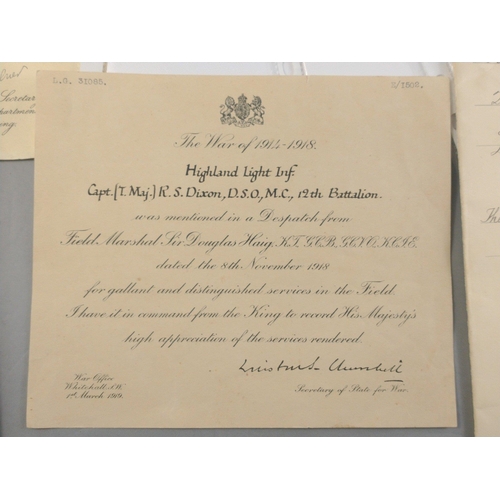 L.G. 31089.
S/1502.
The War of 1914-1918.
Highland Light Inf.
Capt. (T. Maj.) R. S. Dixon, D.S.O., M.C., 12th Battalion.
was mentioned in a Despatch from
Field Marshal Sir Douglas Haig, K.T., G.C.B., G.C.V.O., K.C.I.E.
dated the 8th November 1918
for gallant and distinguished services in the Field.
I have it in command from the King to record His Majesty's
high appreciation of the services rendered.
Winston S. Churchill
Secretary of State for War.
War Office
Whitehall, S.W.
1st March 1919.
Secretar